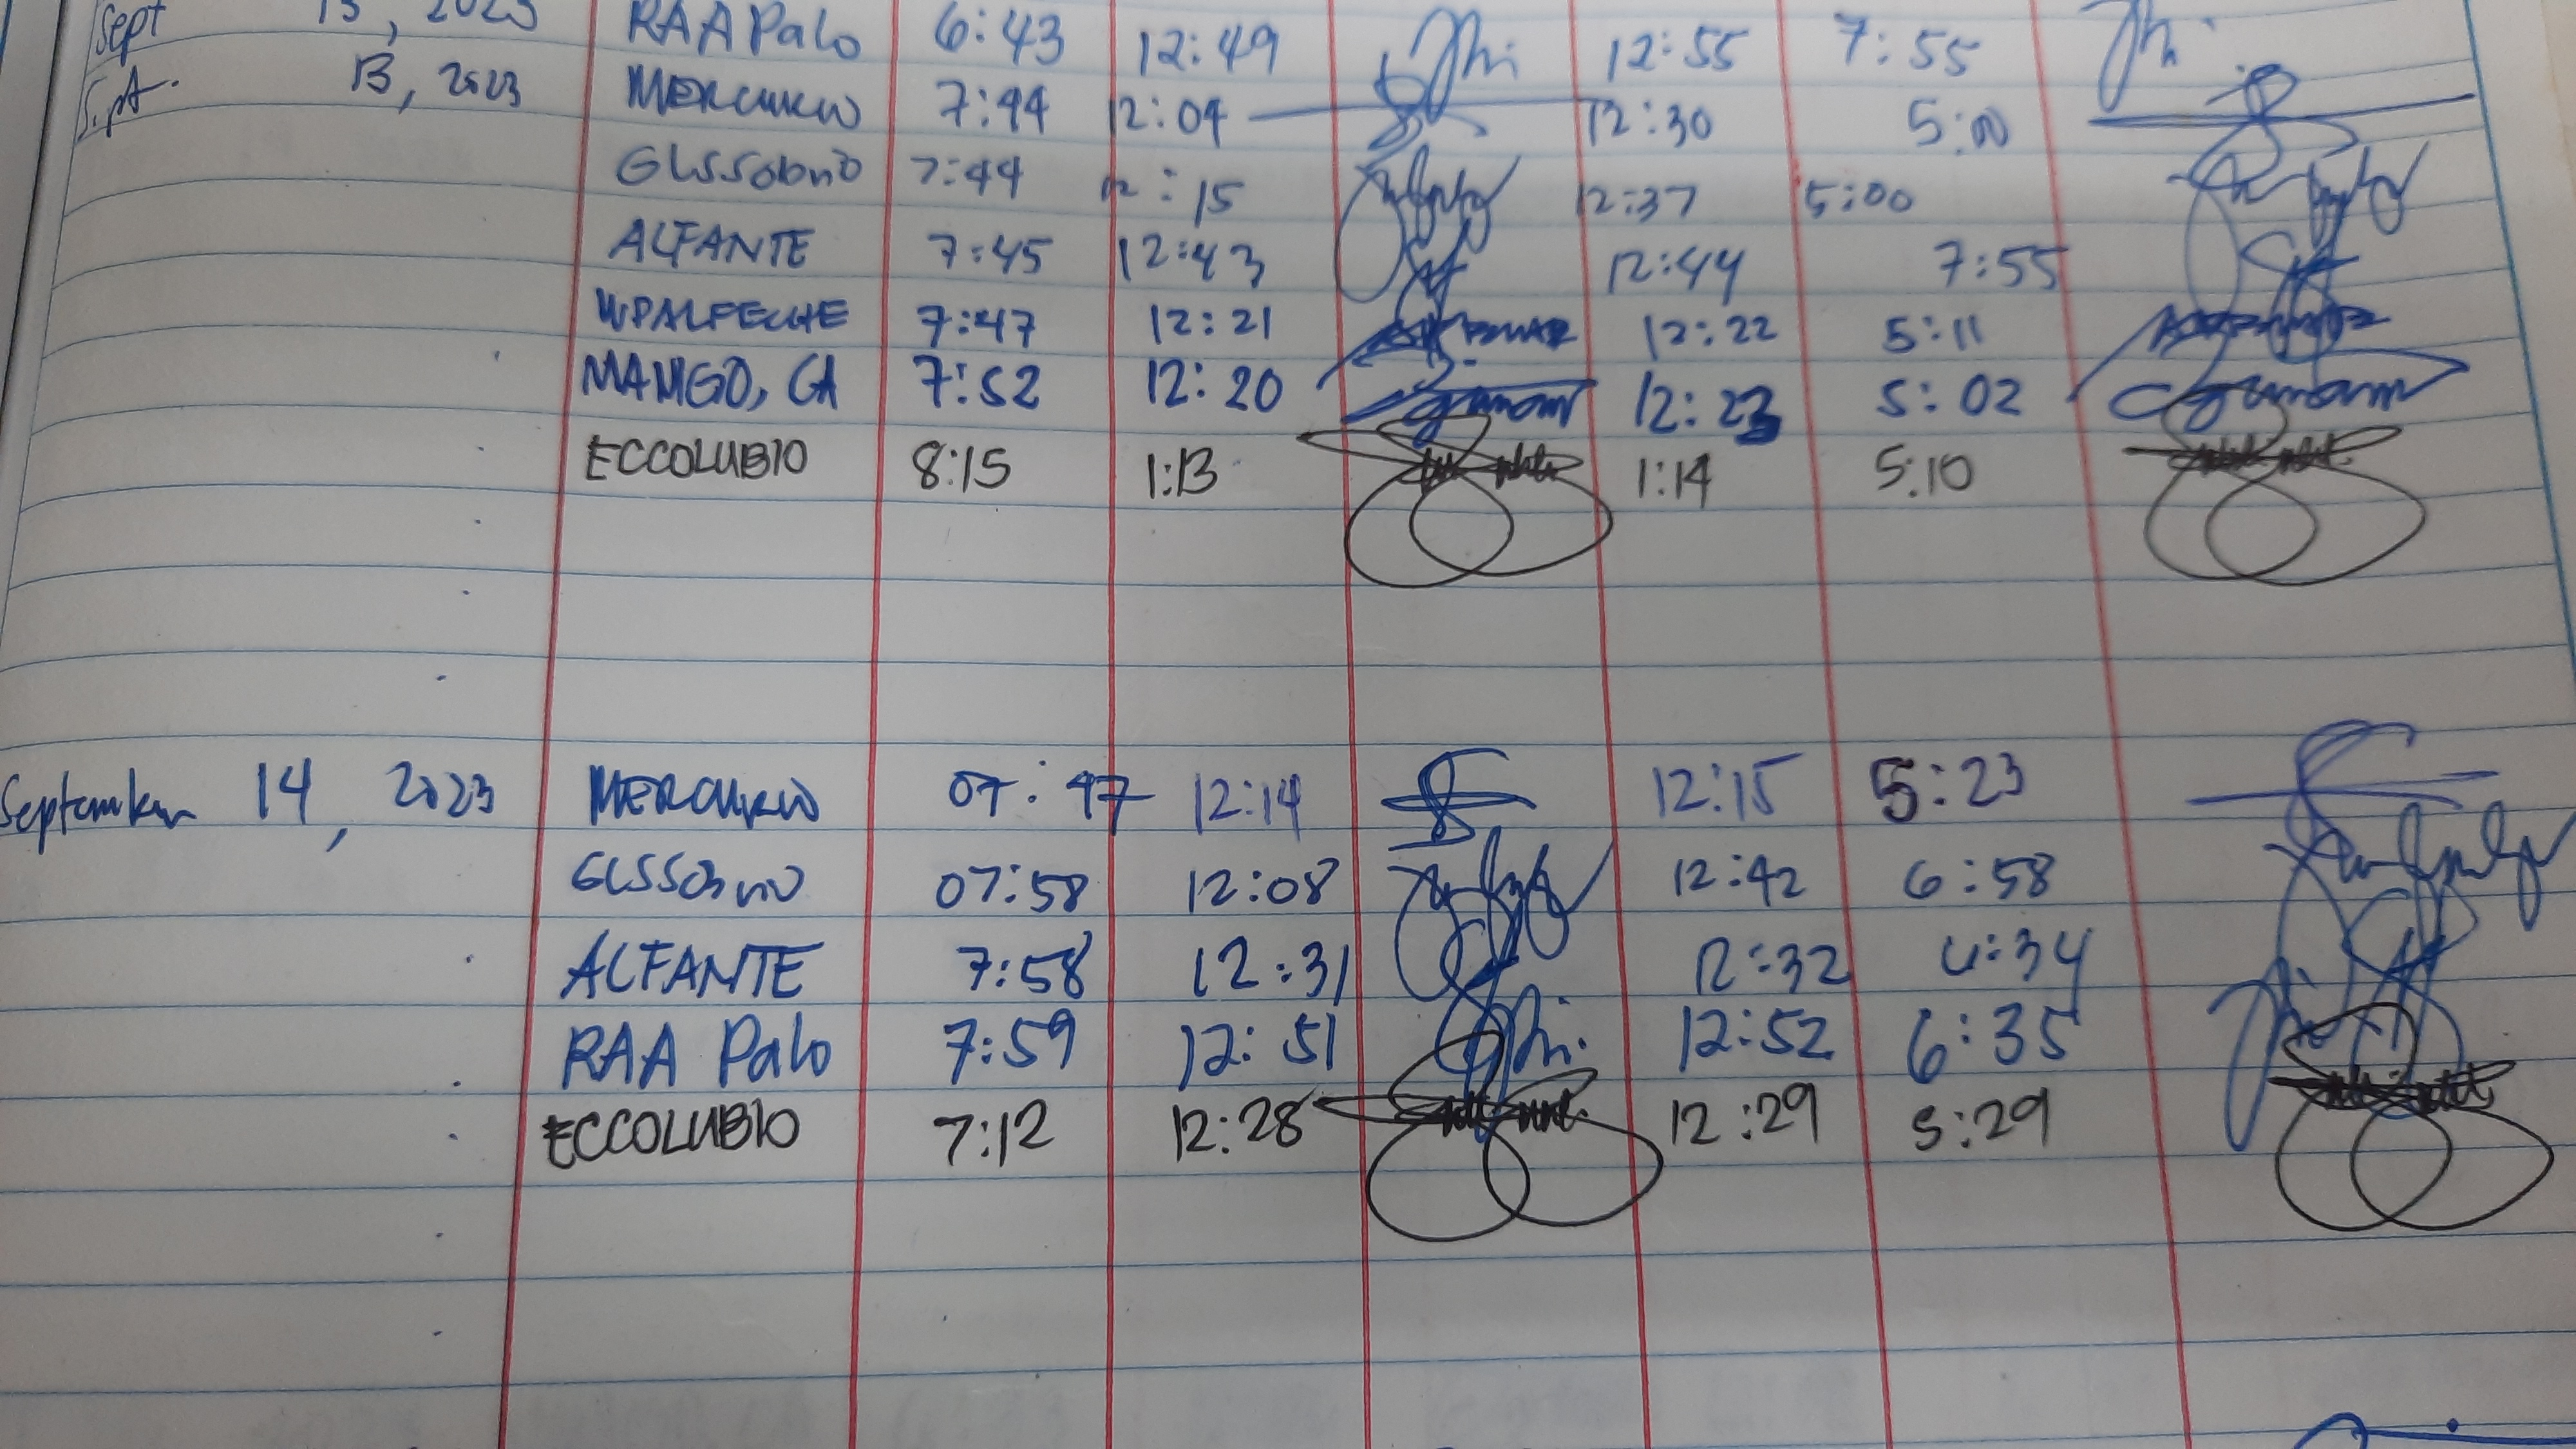 Sept 13, 2023 RAA Palo 6:43 12:49 12:55 7:55
Sept. 13, 2023 MERCURIO 7:44 12:04 12:30 5:00
7:44 12:15 12:37 5:00
ALFANTE 7:45 12:43 12:44 7:55
7:47 12:21 12:22 5:11
MAMGO, CA 7:52 12:20 12:23 5:02
ECCOLUBIO 8:15 1:13 1:14 5:10
September 14, 2023 MERCURIO 07:47 12:14 12:15 5:23
07:58 12:08 12:42 6:58
ALFANTE 7:58 12:31 12:32 4:34
RAA Palo 7:59 12:51 12:52 6:35
ECCOLUBIO 7:12 12:28 12:29 5:29